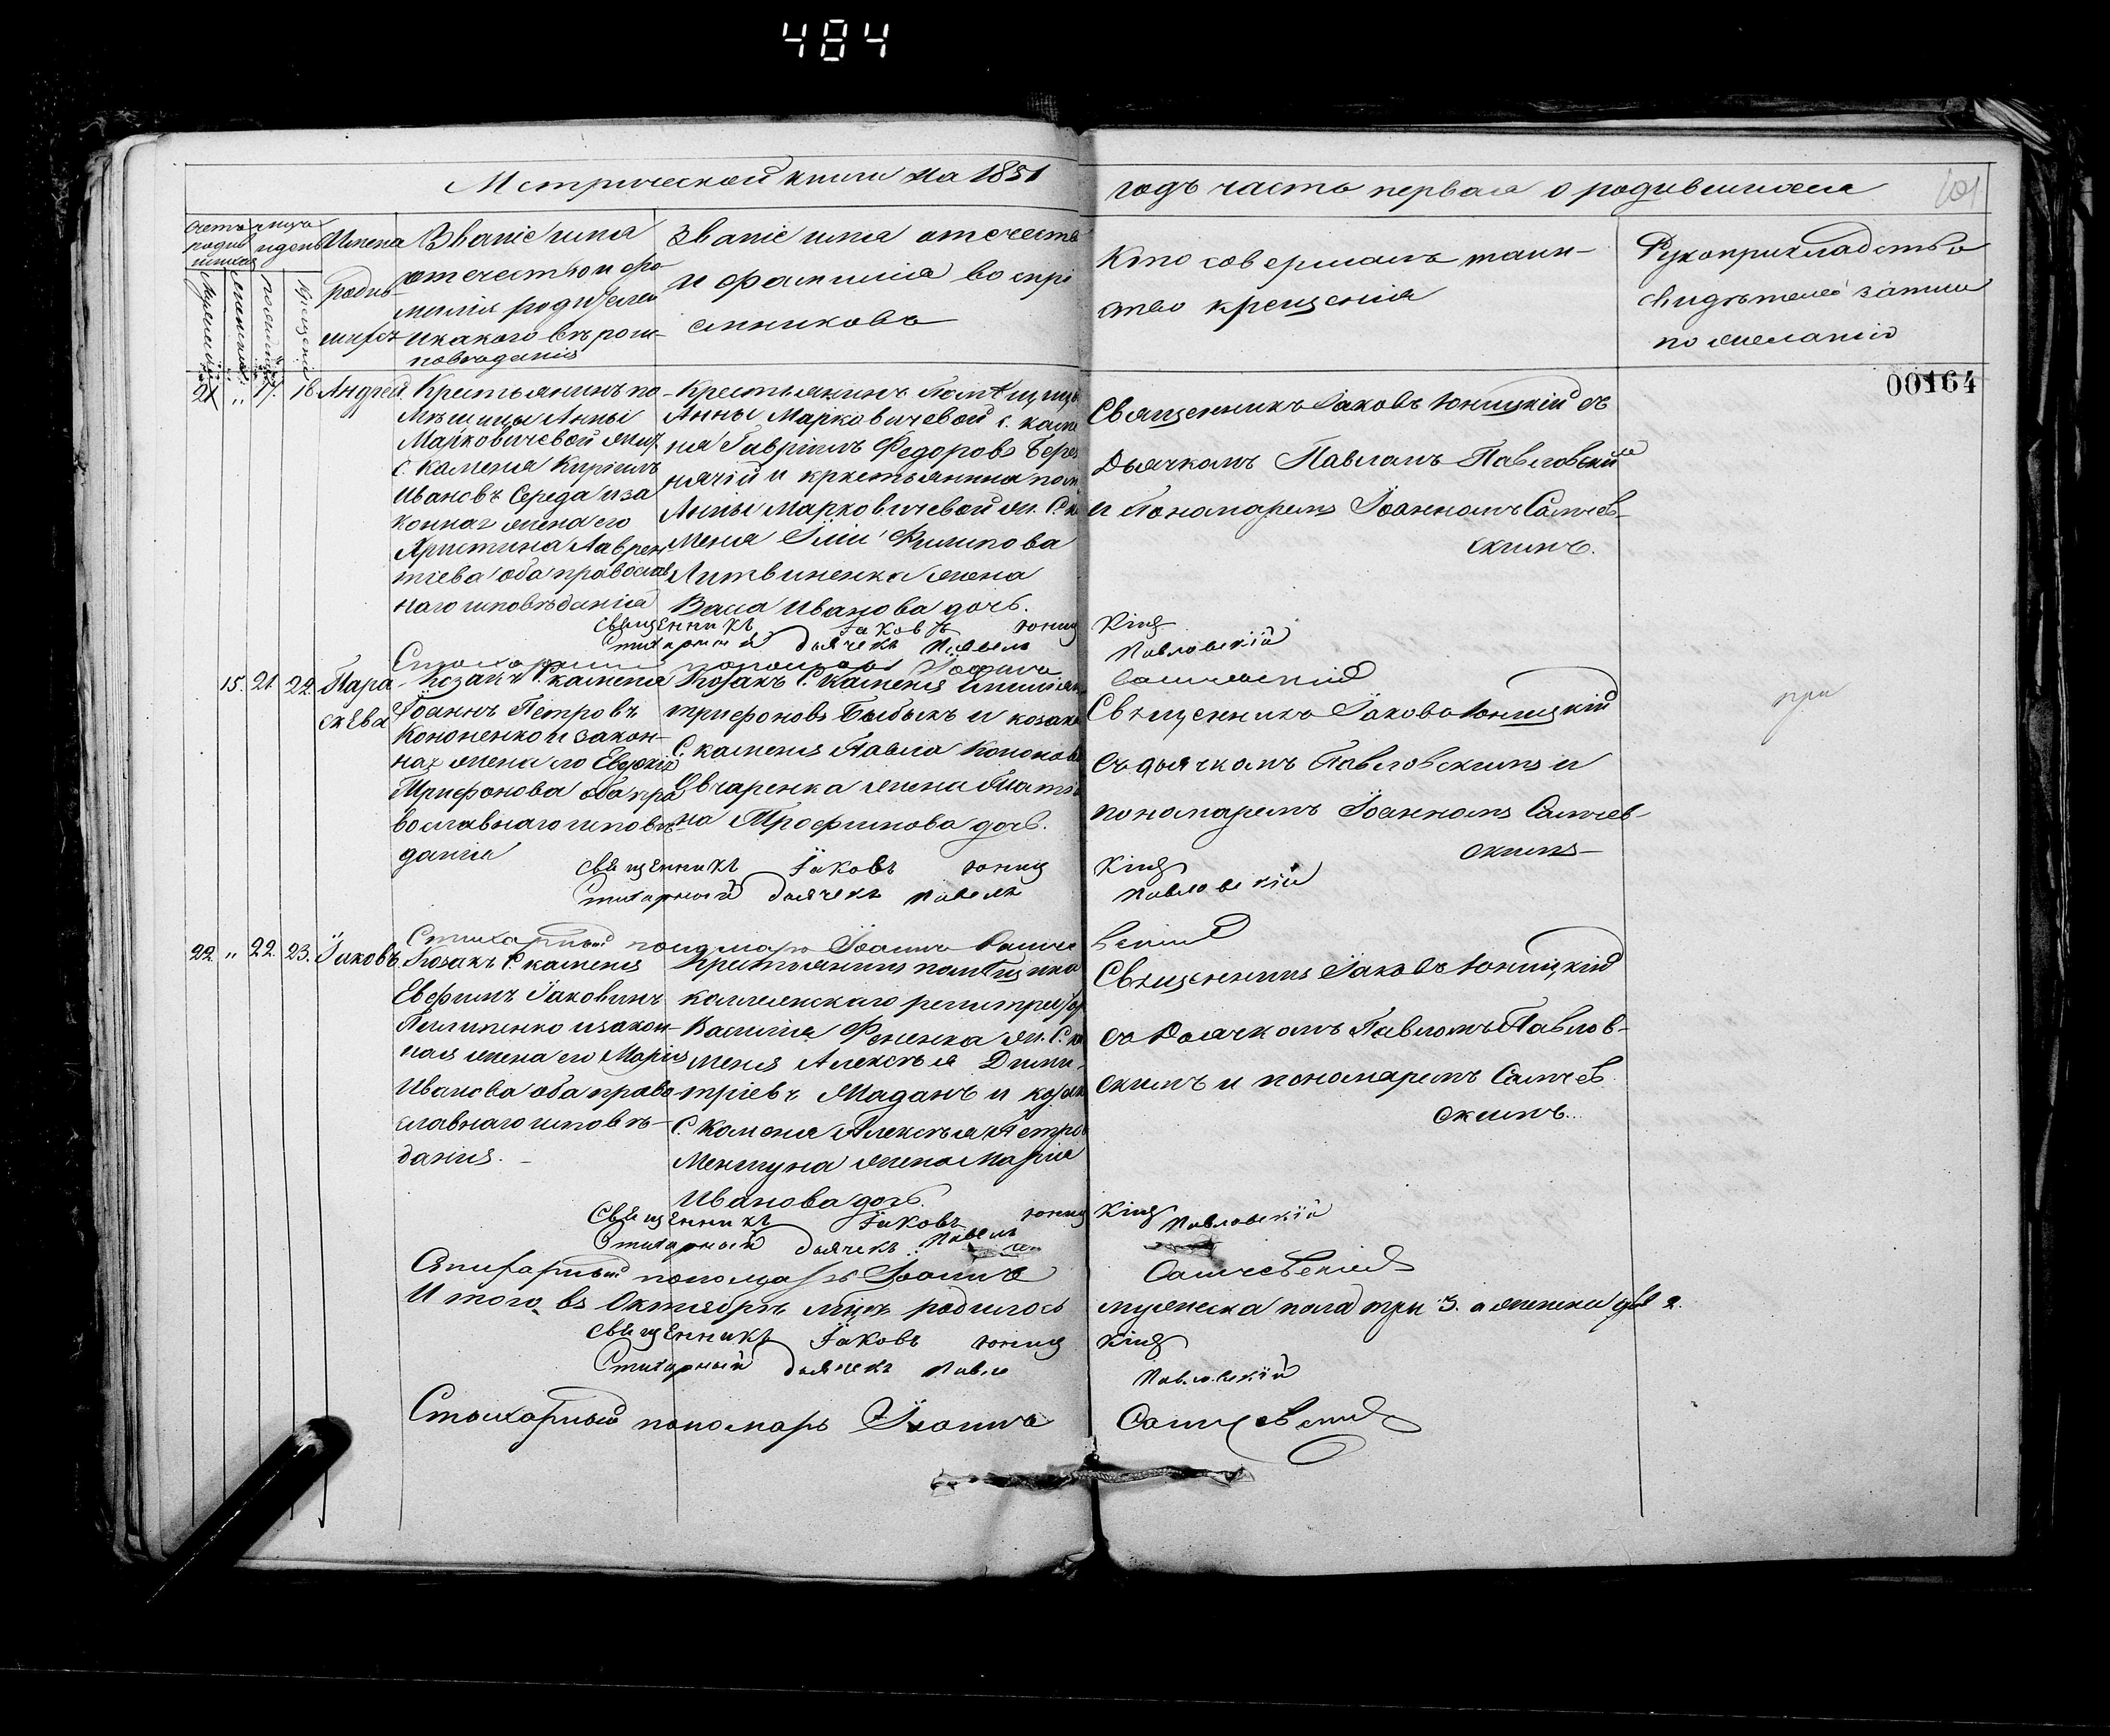 484
Метрической книги на 1851
годъ часть первая о родившихся
101
Счетъ
родив
шихся
число
и день
Имена
родив-
шихся
Званіе имя
отечество и фа
милія родителей
и какого вѣроис-
повѣданія
Званіе имя отечество
и фамилія воспрі
емниковъ
Кто совершалъ таин-
ство крещенія
Рукоприкладство
свидѣтелей записи
по желанію
00164
21 " 17. 18 Андрей
Крестьянинъ по
мѣщицы Анны
Марковичевой жит.
С. Каменя Кирилъ
Ивановъ Середа и за
конная жена его
Христина Лаврен
тіева оба православ
наго исповѣданія
Крестьянинъ помѣщицы
Анны Марковичевой с. Каме
ня Гавріилъ Федоровъ Берез
нячій и крестьянина пом.
Анны Марковичевой ж. С. Ка
меня Иліи Филипова
Литвиненка жена
Васа Иванова дочь.
Священникъ Іаковъ Юниц
кій
Стихарный дьячекъ Павелъ
Павловскій
Стихарный пономарь Іоаннъ
Самчевскій
Священникъ Іаковъ Юницкій съ
Дьячкомъ Павломъ Павловским
и Пономаремъ Іоанномъ Самчев-
скимъ.
15. 21. 22. Пара
скева
Козакъ С. Каменя
Іоаннъ Петровъ
Кононенко и закон-
ная жена его Евдокія
Трифонова оба пра
вославнаго исповѣ-
данія
Козакъ С. Каменя
Трифоновъ Бибикъ и козака
С. Каменя Павла Кононова
Овчаренка жена Татія
на Трофимова дочь.
Священникъ Іаковъ Юниц
кій
Стихарный дьячекъ Павелъ
Павловскій
Стихарный пономарь Іоаннъ Самче
вскій
Священникъ Іаковъ Юницкій
съ дьячкомъ Павловскимъ и
пономаремъ Іоанномъ Самчев-
скимъ
при
22. " 22. 23. Іаковъ.
Козакъ С. Каменя
Евфимъ Іаковинъ
Пилипенко и закон-
ная жена его Марія
Иванова оба право
славнаго исповѣ-
данія.
Крестьянинъ помѣщика
коллежскаго регистратор
Василія Фененка ж. С. Ка
меня Алексѣя Дими-
тріевъ Маданъ и козака
С. Каменя Алексѣя Петров
Менжуна жена Марія
Иванова дочь.
Священникъ Іаковъ Юниц
кій
Стихарный дьячекъ Павелъ
Павловскій
Стихарный пономарь Іоаннъ
Самчевскій
Священникъ Іаковъ Юницкій
съ Дьячкомъ Павломъ Павлов-
скимъ и пономаремъ Самчев
скимъ.
Итого въ Октябрѣ мѣцѣ родилось
мужеска пола три 3. а женска двѣ 2.
Священникъ Іаковъ Юниц
кій
Стихарный дьячекъ Павел
Павловскій
Стихарный пономарь Іоаннъ
Самчевскій